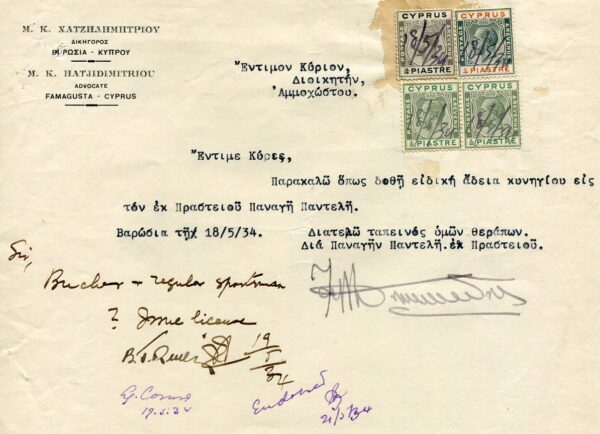 Μ. Κ. ΧΑΤΖΗΔΗΜΗΤΡΙΟΥ
ΔΙΚΗΓΟΡΟΣ
ΒΑΡΩΣΙΑ - ΚΥΠΡΟΥ
M. K. HATJIDIMITRIOU
ADVOCATE
FAMAGUSTA - CYPRUS
CYPRUS
CYPRUS
18/5/34
18/5/34
PIASTRE
PIASTRE
CYPRUS
CYPRUS
PIASTRE
PIASTRE
Ἔντιμον Κύριον,
Διοικητήν,
Ἀμμοχώστου.
Ἔντιμε Κύριε,
Παρακαλῶ ὅπως δοθῇ εἰδική ἄδεια κυνηγίου εἰς
τόν ἐκ Πραστειοῦ Παναγῆ Παντελῆ.
Βαρώσια τῇ 18/5/34.
Διατελῶ ταπεινός ὑμῶν θεράπων.
Διά Παναγῆν Παντελῆ.ἐκ Πραστειοῦ.
Sir,
regular sportsman
? Issue licence
19/5/34
19.5.34
Endorsed
21/5/34